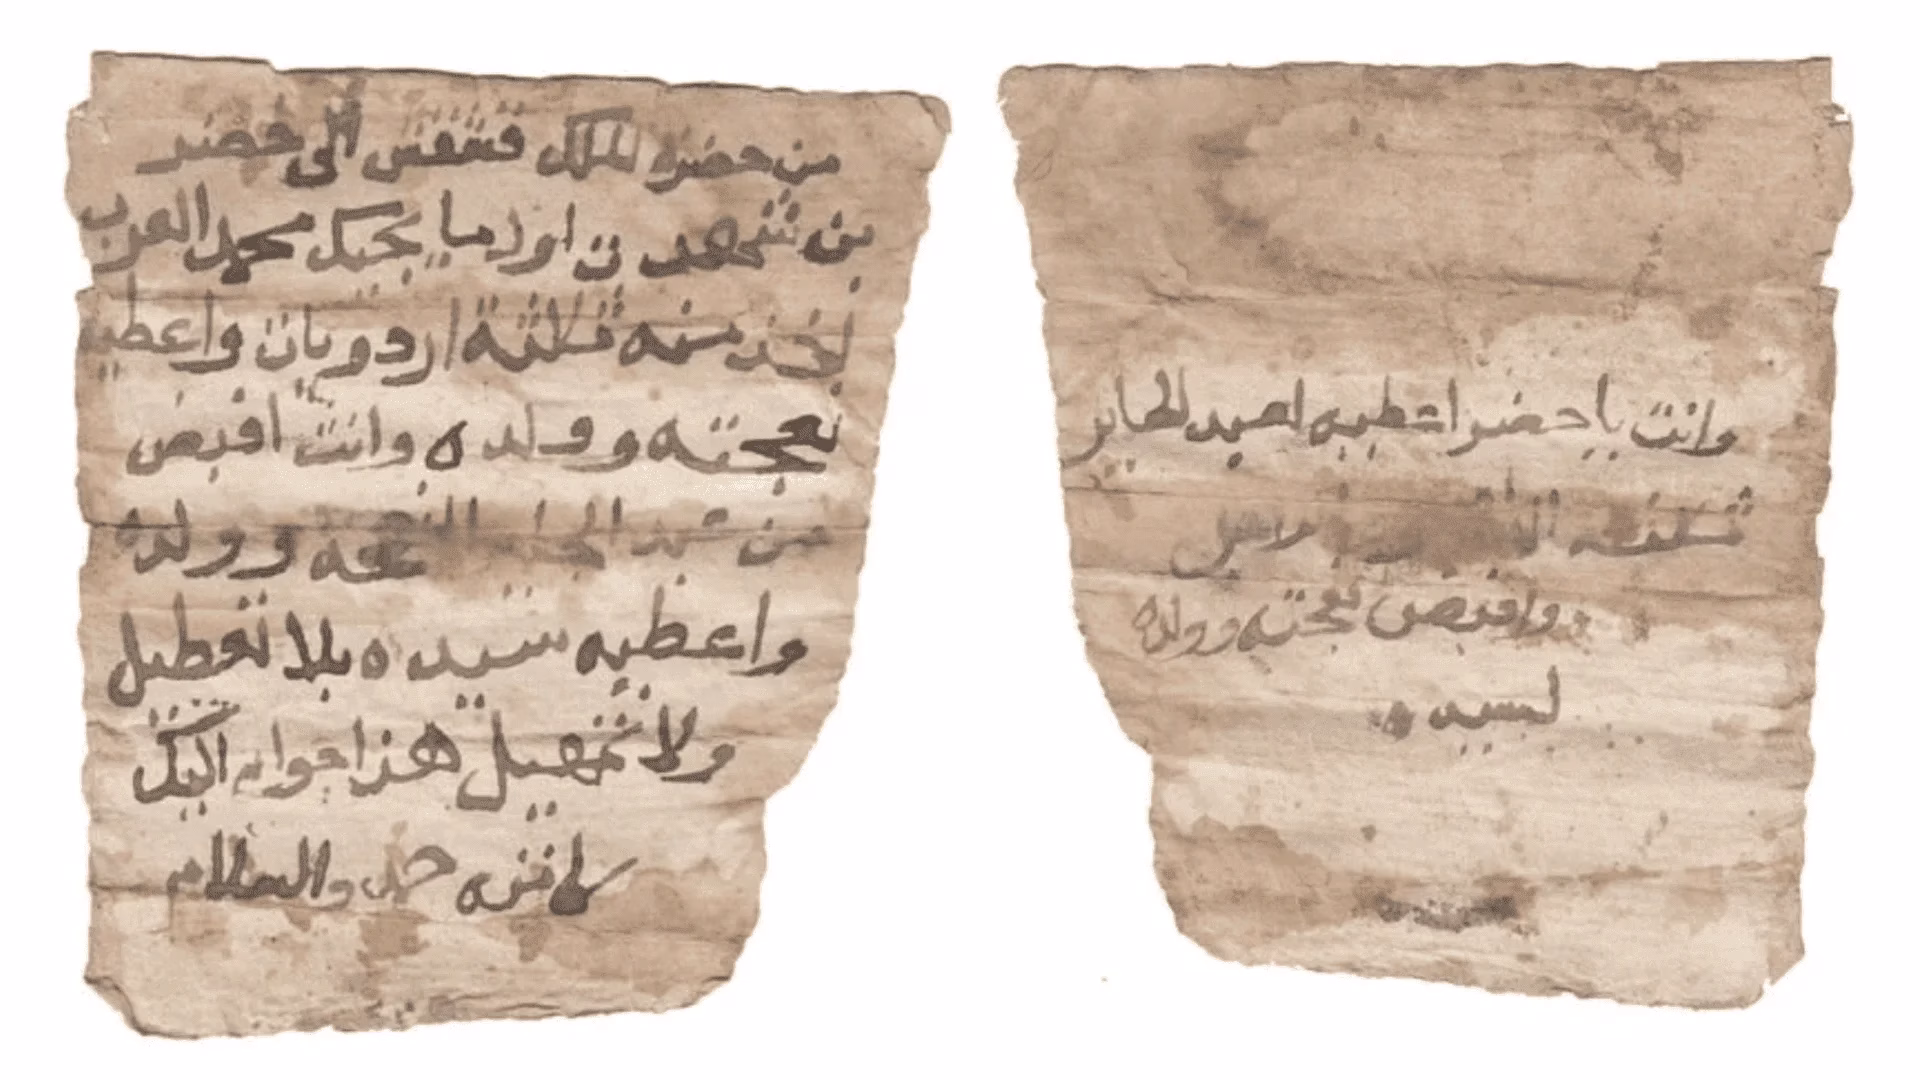 من حضره الملك قشقش الى خضر
بن شهد ن اور ما يجيك محمد العرب
لخذ منه ثلاثة اردويات واعطيه
نعجته وولده وانت اقبض
من عبد الجابر النعجه وولده
واعطيه سيده بلا تعطيل
ولا تمهيل هذا جواب اليك
كاتبه حمد والسلام
وانت يا خضر اعطيه لعبد الجابر
ثلاثة
واقبض نعجته وولده
لسيده